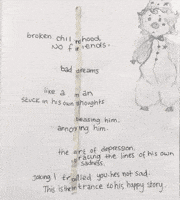 broken childhood,
NO friends.
bad dreams
like a man
stuck on his own thoughts
teasing him.
annoying him.
the art of depression.
tracing the lines of his own
sadness.
joking I trolled you he's not sad.
This is the entrance to his happy story.